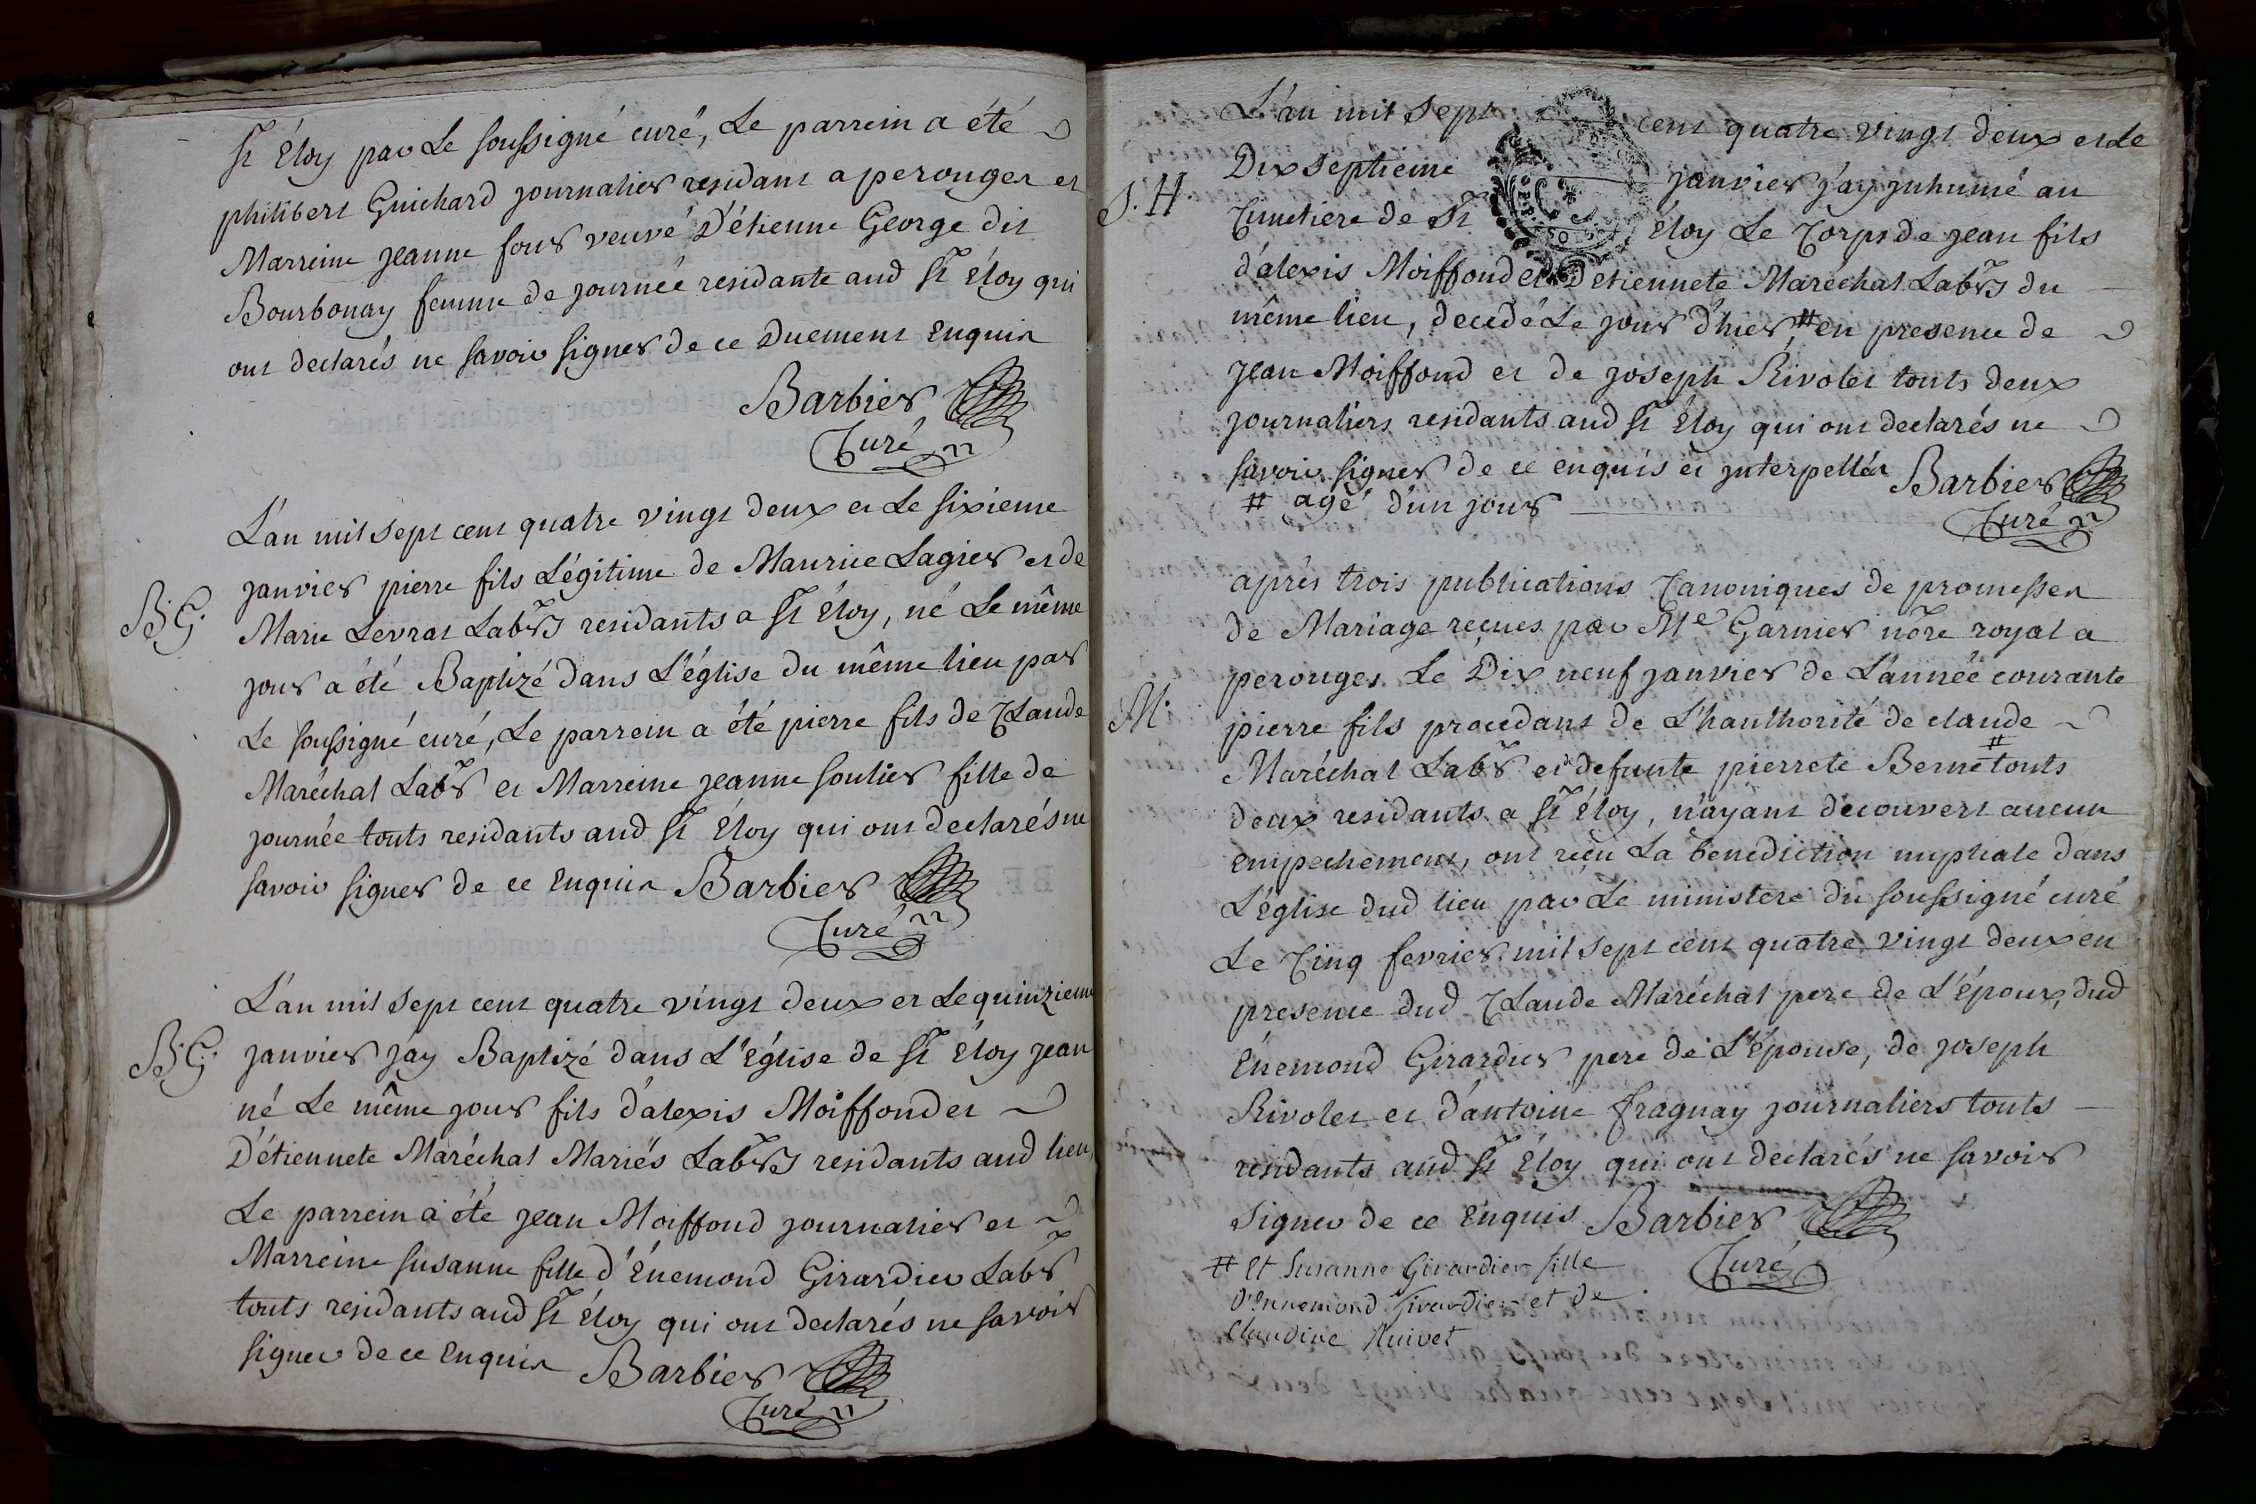 St Éloy par Le soussigné curé, Le parrein a été
philibert Guichard journalier residant a perouges et
Marreine jeanne four veuve D'étienne George dit
Bourbonay femme de journeé residante aud St Éloy qui
ont declarés ne savoir signer de ce Duement Enquis
Barbier
Curé
L'an mil sept cent quatre vingt deux et Le sixieme
janvier pierre fils Légitime de Maurice Lagier et de
B. G.
Marie Levrat Labrs residants a St Éloy, né Le même
jour a été Baptizé dans L'église du même lieu par
Le soussigné curé, Le parrein a été pierre fils de Claude
Maréchal Labr et Marreine jeanne soulier fille de
journée touts residants aud St Éloy qui ont declarés ne
savoir signer de ce Enquis Barbier
Curé
L'an mil sept cent quatre vingt deux et Le quinzieme
B. G. janvier j'ay Baptizé dans L'Église de St Éloy jean
né Le même jour fils d'alexis Moiffond et
D'étiennete Maréchal Mariés Labrs residants aud lieu,
Le parrein a été jean Moiffond journalier et
Marreine susanne fille d'Énemond Girardier Labr
touts residants aud St Éloy qui ont declarés ne savoir
signer de ce Enquis Barbier
Curé
L'an mil sept cent quatre vingt deux et le
Dix septieme janvier j'ay jnhumé au
S. H.
Cimetiere de St Éloy Le Corps de jean fils
d'alexis Moiffond et D'etiennete Maréchal Labrs du
même lieu, decedé Le jour d'hier # en presence de
jean Moiffond et de joseph Rivolet touts deux
journaliers residants aud St Éloy qui ont declarés ne
savoir signer de ce enquis et jnterpellés Barbier
# agé d'un jour
Curé
après trois publications Canoniques de promesses
de Mariage reçues par Me Garnier nõre royal a
perouges Le Dix neuf janvier de L'année courante
M. pierre fils procedant de L'hauthorité de claude
Maréchal Labr et de defunte pierrete Berne # touts
deux residants a St Éloy, n'ayant decouvert aucun
empechement, ont reçu La benediction nuptiale dans
L'Église dud lieu par Le ministere du soussigné curé
Le Cinq fevrier mil sept cent quatre vingt deux en
presence dud Claude Maréchal pere de L'Époux, dud
Énemond Girardier pere de L'Épouse, de joseph
Rivolet et d'antoine fragnay journaliers touts
residants aud St Éloy qui ont declarés ne savoir
signer de ce Enquis Barbier
Curé
# Et Susanne Girardier fille
D'ennemond Girardier et de
Claudine Nuivet